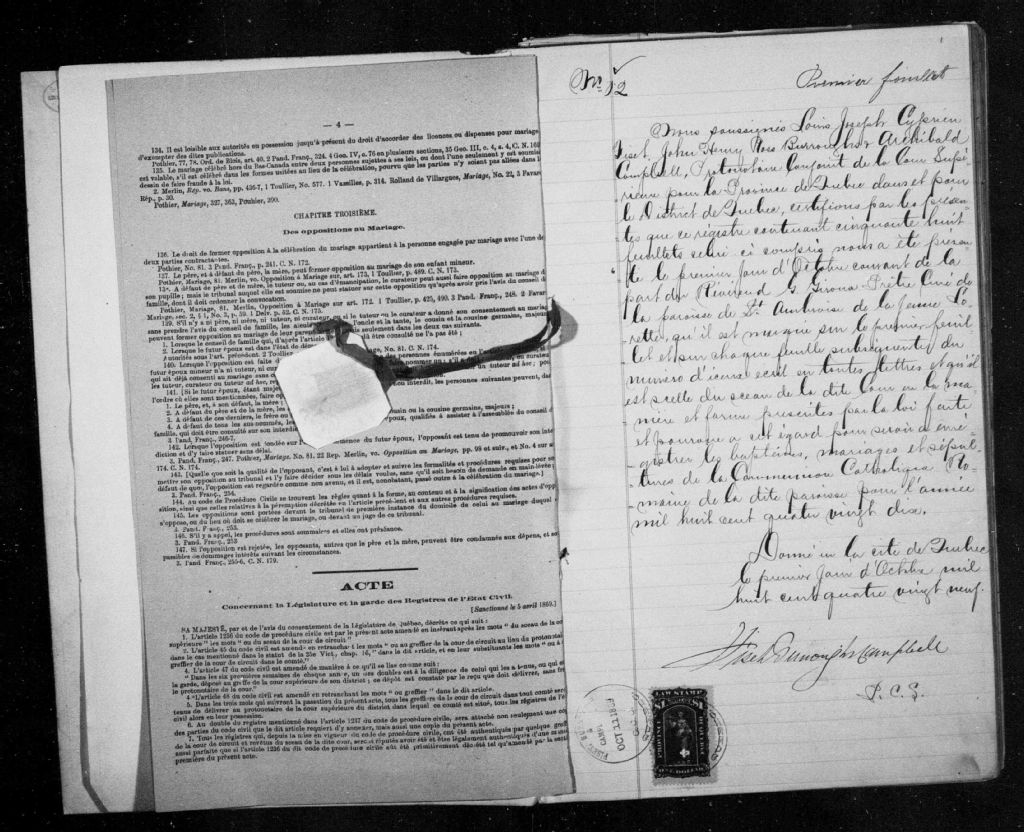 — 4 —
134. Il est loisible aux autorités en possession jusqu'à présent du droit d'accorder des licences ou dispenses pour mariage
d'exempter des dites publications.
Pothier, 77, 78. Ord. de Blois, art. 40. 2 Pand. Franç., 324. 4 Geo. IV, c. 76 en plusieurs sections, 35 Geo. III, c. 4, s. 4, C. N. 169
135. Le mariage célébré hors du Bas-Canada entre deux personnes sujettes à ses lois, ou dont l'une seulement y est soumise
est valable, s'il est célébré dans les formes usitées au lieu de la célébration, pourvu que les parties n'y soient pas allées dans l
dessein de faire fraude à la loi.
2. Merlin, Rep. vo. Bans, pp. 436-7, 1 Toullier, No. 577. 1 Vazilles, p. 314. Rolland de Villargues, Mariage, No. 22, 3 Favar
Rép., p. 30.
Pothier, Mariage, 327, 363, Pothier, 290.
CHAPITRE TROISIÈME.
Des oppositions au Mariage.
136. Le droit de former opposition à la célébration du mariage appartient à la personne engagée par mariage avec l'une de
deux parties contractantes.
Pothier, No. 81. 3 Pand. Franç., p. 241. C. N. 172.
137. Le père, et à défaut du père, la mère, peut former opposition au mariage de son enfant mineur.
Pothier, Mariage, 81. Merlin, vo. Opposition à Mariage sur art. 173, 1 Toullier, p. 489. C. N. 173.
A défaut de père et de mère, le tuteur ou, au cas d'émancipation, le curateur peut aussi faire opposition au mariage d
son pupille; mais le tribunal auquel elle est soumise ne peut statuer sur cette opposition qu'après avoir pris l'avis du conseil d
famille, dont il doit ordonner la convocation.
Pothier, Mariage, 81. Merlin, Opposition à Mariage sur art. 172. 1 Toullier, p. 425, 490. 3 Pand. Franç., 248. 2 Favar
139. S'il n'y a ni père, ni mère, ni tuteur, ni curateur, ou si le tuteur ou le curateur a donné son consentement au mariag
sans prendre l'avis du conseil de famille, les aïeuls l'oncle et la tante, le cousin et la cousine germains, majeurs
peuvent former opposition au mariage de leur seulement dans les deux cas suivants.
1. Lorsque le conseil de famille qui, d'après l'article été consulté ne l'a pas été;
2. Lorsque le futur époux est dans l'état de
No. 81. C. N. 174.
140. Lorsque opposition est faite
futur époux mineur n'a ni tuteur, ni
qui ait déjà consenti au mariage sans
les tuteur, curateur ou tuteur ad hoc,
141. [Si le futur époux, étant
l'ordre où elles sont mentionnées, faire
1. Le père, et à son défaut, la mère;
2. A défaut du père et de la mère, les
3. A défaut de ces derniers, le frère ou ou la cousine germains, majeurs;
4. A défaut de tous les sus-nommés, les époux, qualifiés à assister à l'assemblée du conseil d
famille, qui doit être consulté sur son interdi
3 Pand. Franç., 246-7.
142. Lorsque l'opposition est fondée sur du futur époux, l'opposant est tenu de promouvoir son inte
diction et d'y faire statuer sans délai.
3. Pand. Franç., 247. Pothier, Mariage, No. 81. 22 Rep. Merlin, vo. Opposition au Mariage, pp. 98 et suiv., et No. 4 sur a
174. C. N. 174.
143. [Quelle que soit la qualité de l'opposant, c'est à lui à adopter et suivre les formalités et procédures requises pour so
mettre son opposition au tribunal et l'y faire décider sous les délais voulus, sans qu'il soit besoin de demande en main-levée;
défaut de quoi, l'opposition est regardée comme non avenue, et il est, nonobstant, passé outre à la célébration du mariage.]
3. Pand. Franç., 254.
144. Au code de Procédure Civile se trouvent les règles quant à la forme, au contenu et à la signification des actes d'opp
sition, ainsi que celles relatives à la péremption décrétée en l'article précédent et aux autres procédures requises.
145. Les oppositions sont portées devant le tribunal de première instance du domicile de celui au mariage duquel o
s'oppose, ou du lieu où doit se célébrer le mariage, ou devant un juge de ce tribunal.
3. Pand. Franç., 253.
146. S'il y a appel, les procédures sont sommaires et elles ont préséance.
3. Pand. Franç., 253
147. Si l'opposition est rejetée, les opposants, autres que le père et la mère, peuvent être condamnés aux dépens, et so
passibles de dommages intérêts suivant les circonstances.
3. Pand Franç., 255-6, C. N. 179.
ACTE
Concernant la Législature et la garde des Registres de l'Etat Civil.
[Sanctionné le 5 avril 1869.]
SA MAJESTÉ, par et de l'avis du consentement de la Législature de Québec, décrète ce qui suit:
1. L'article 1236 du code de procédure civile est par le présent acte amendé en insérant après les mots "du sceau de la co
supérieure" les mots "ou du sceau de la cour de circuit."
2. L'article 45 du code civil est amendé en retranchant les mots "ou au greffier de la cour de circuit au lieu du protonotai
dans le cas mentionné dans le statut de la 25e Vict., chap. 16," dans le dit article, et en leur substituant les mots "ou à
greffier de la cour de circuit dans le comté."
4. L'article 47 du code civil est amendé de manière à ce qu'il se lise comme suit:
"Dans les six premières semaines de chaque année, un des doubles est à la diligence de celui qui les a tenus, ou qui en
la garde, déposé au greffe de la cour supérieure de son district; ce dépôt est constaté par le reçu que doit délivrer, sans fr
le protonotaire de la cour."
4 "L'article 48 du code civil est amendé en retranchant les mots "ou greffier" dans le dit article.
5. Dans les trois mois qui suivront la passation du présent acte, tous les greffiers de la cour de circuit dans tout comté sero
tenus de délivrer au protonotaire de la cour supérieure du district dans lequel ce comté est situé, tous les registres de l'é
civil alors en leur possession.
6. Au double du registre mentionné dans l'article 1217 du code de procédure civile, sera attaché non seulement une co
des parties du code civil que le dit article requiert d'y annexer, mais aussi une copie du présent acte.
7. Tous les registres qui, depuis la mise en vigueur du code de procédure civile, ont été authentiqués par quelque greff
de la cour de circuit et revêtus du sceau de la dite cour, seront réputés avoir été et être légalement authentiqués d'une ma
aussi parfaite que si l'article 1236 du dit code de procédure civile eût été primitivement décrété tel qu'amendé par la sect
première du présent acte.
No. 12
Premier feuillet
Nous soussignés Louis Joseph Cyprien
Fiset, John Henry Ross Burroughs & Archibald
Campbell, Protonotaire Conjoint de la Cour Supé-
rieure pour la Province de Québec dans et pour
le District de Québec, certifions par les présen-
tes que ce régistre contenant cinquante huit
feuillets celui ci compris nous a été présen-
té le premier jour d'Octobre courant de la
part du Révérend G Giroux Prêtre Curé de
la paroisse de St. Ambroise de la Jeune Lo-
rette, qu'il est marqué sur le premier feuil
let et sur chaque feuille subséquente du
numéro d'iceux écrit en toutes lettres et qu'il
est scellé du sceau de la dite Cour en la ma
nière et forme prescrites par la loi faite
et pourvue à cet égard pour servir à enré-
gistrer les baptêmes, mariages et sépul-
tures de la Communion Catholique Ro-
maine de la dite paroisse pour l'année
mil huit cent quatre vingt dix.
Donné en la cité de Québec
le premier jour d'Octobre mil
huit cent quatre vingt neuf.
Fiset Burroughs Campbell
P. C. S.
OCT 1 1889
LAW STAMP
$1 $1
QUEBEC
ONE DOLLAR